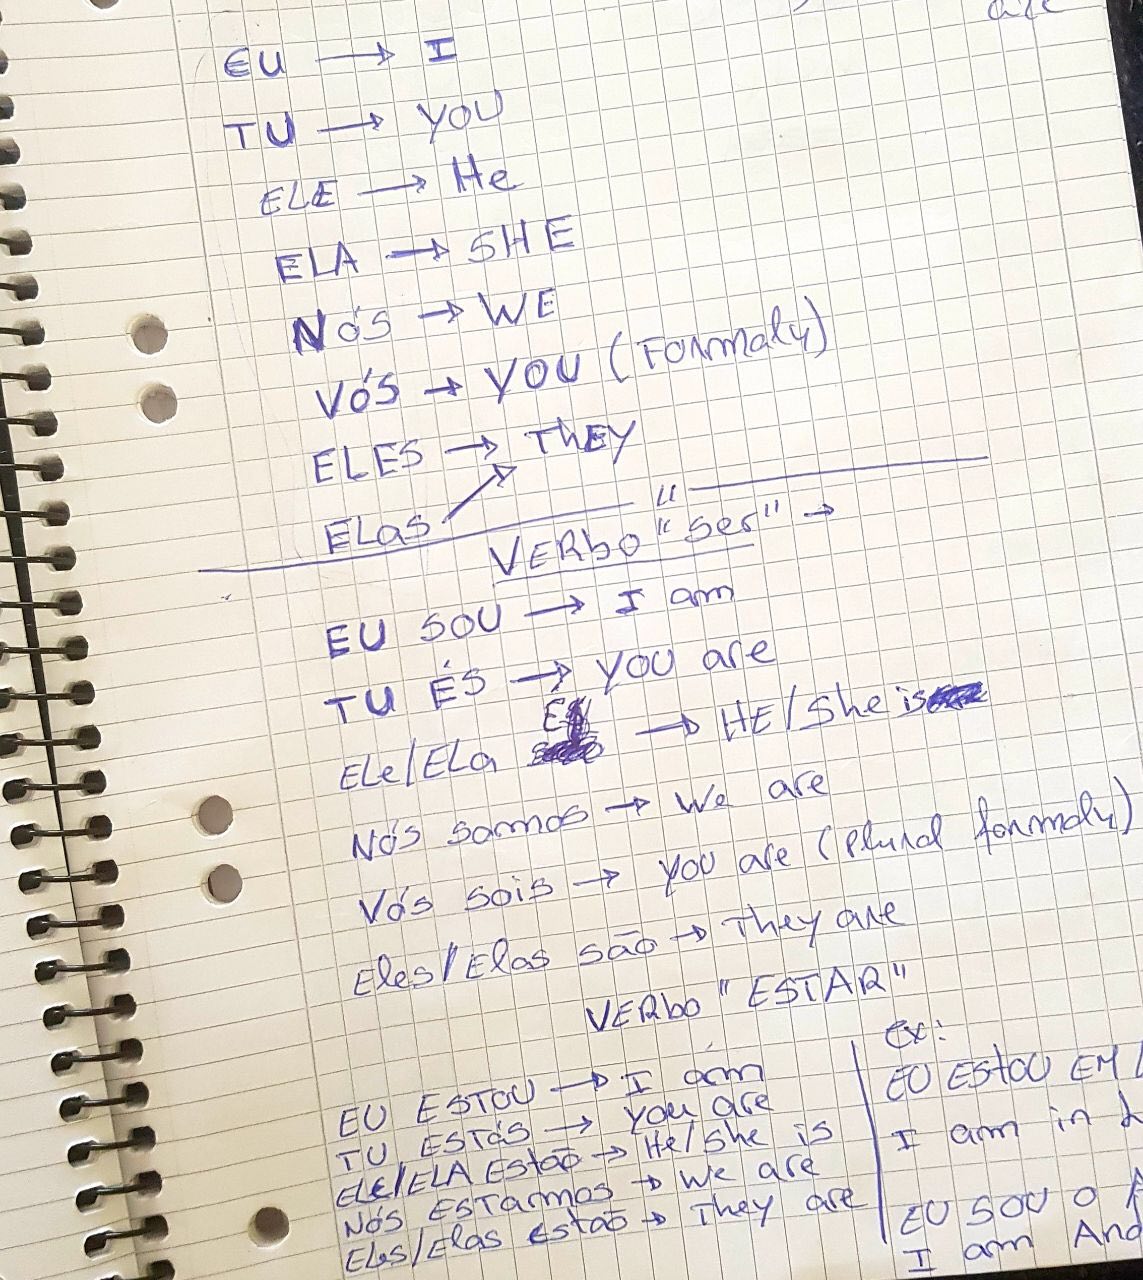 are
EU → I
TU → YOU
ELE → He
ELA → SHE
NÓS → WE
VÓS → YOU (Formaly)
ELES → THEY
ELas
"
VERbo "Ser" →
EU SOU → I am
TU ÉS → YOU are
ELe/ELa → HE/She is
NÓS somos → We are
VÓS sois → YOU are (Plural formaly)
Eles/Elas são → They are
VERbo "ESTAR"
EU ESTOU → I am
TU ESTÁS → You are
ELe/ELA Estão → He/She is
NÓS ESTarmos → We are
Eles/Elas estão → They are
ex:
EU EStOU EM
I am in
EU SOU O
I am And